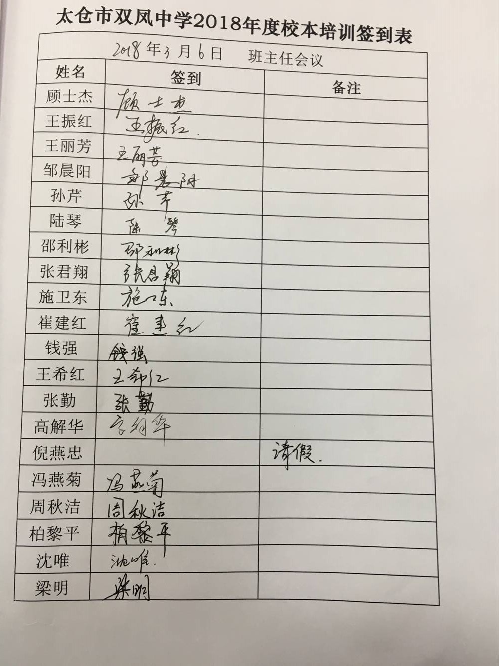 太仓市双凤中学2018年度校本培训签到表
2018年3月6日 班主任会议
姓名 签到 备注
顾士杰 顾士杰
王振红 王振红
王丽芳 王丽芳
邹晨阳 邹晨阳
孙芹 孙芹
陆琴 陆琴
邵利彬 邵利彬
张君翔 张君翔
施卫东 施卫东
崔建红 崔建红
钱强 钱强
王希红 王希红
张勤 张勤
高解华 高解华
倪燕忠 请假.
冯燕菊 冯燕菊
周秋洁 周秋洁
柏黎平 柏黎平
沈唯 沈唯.
梁明 梁明